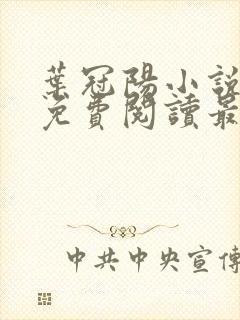 葉冠陽小說
免費閱讀最
中共中央宣傳